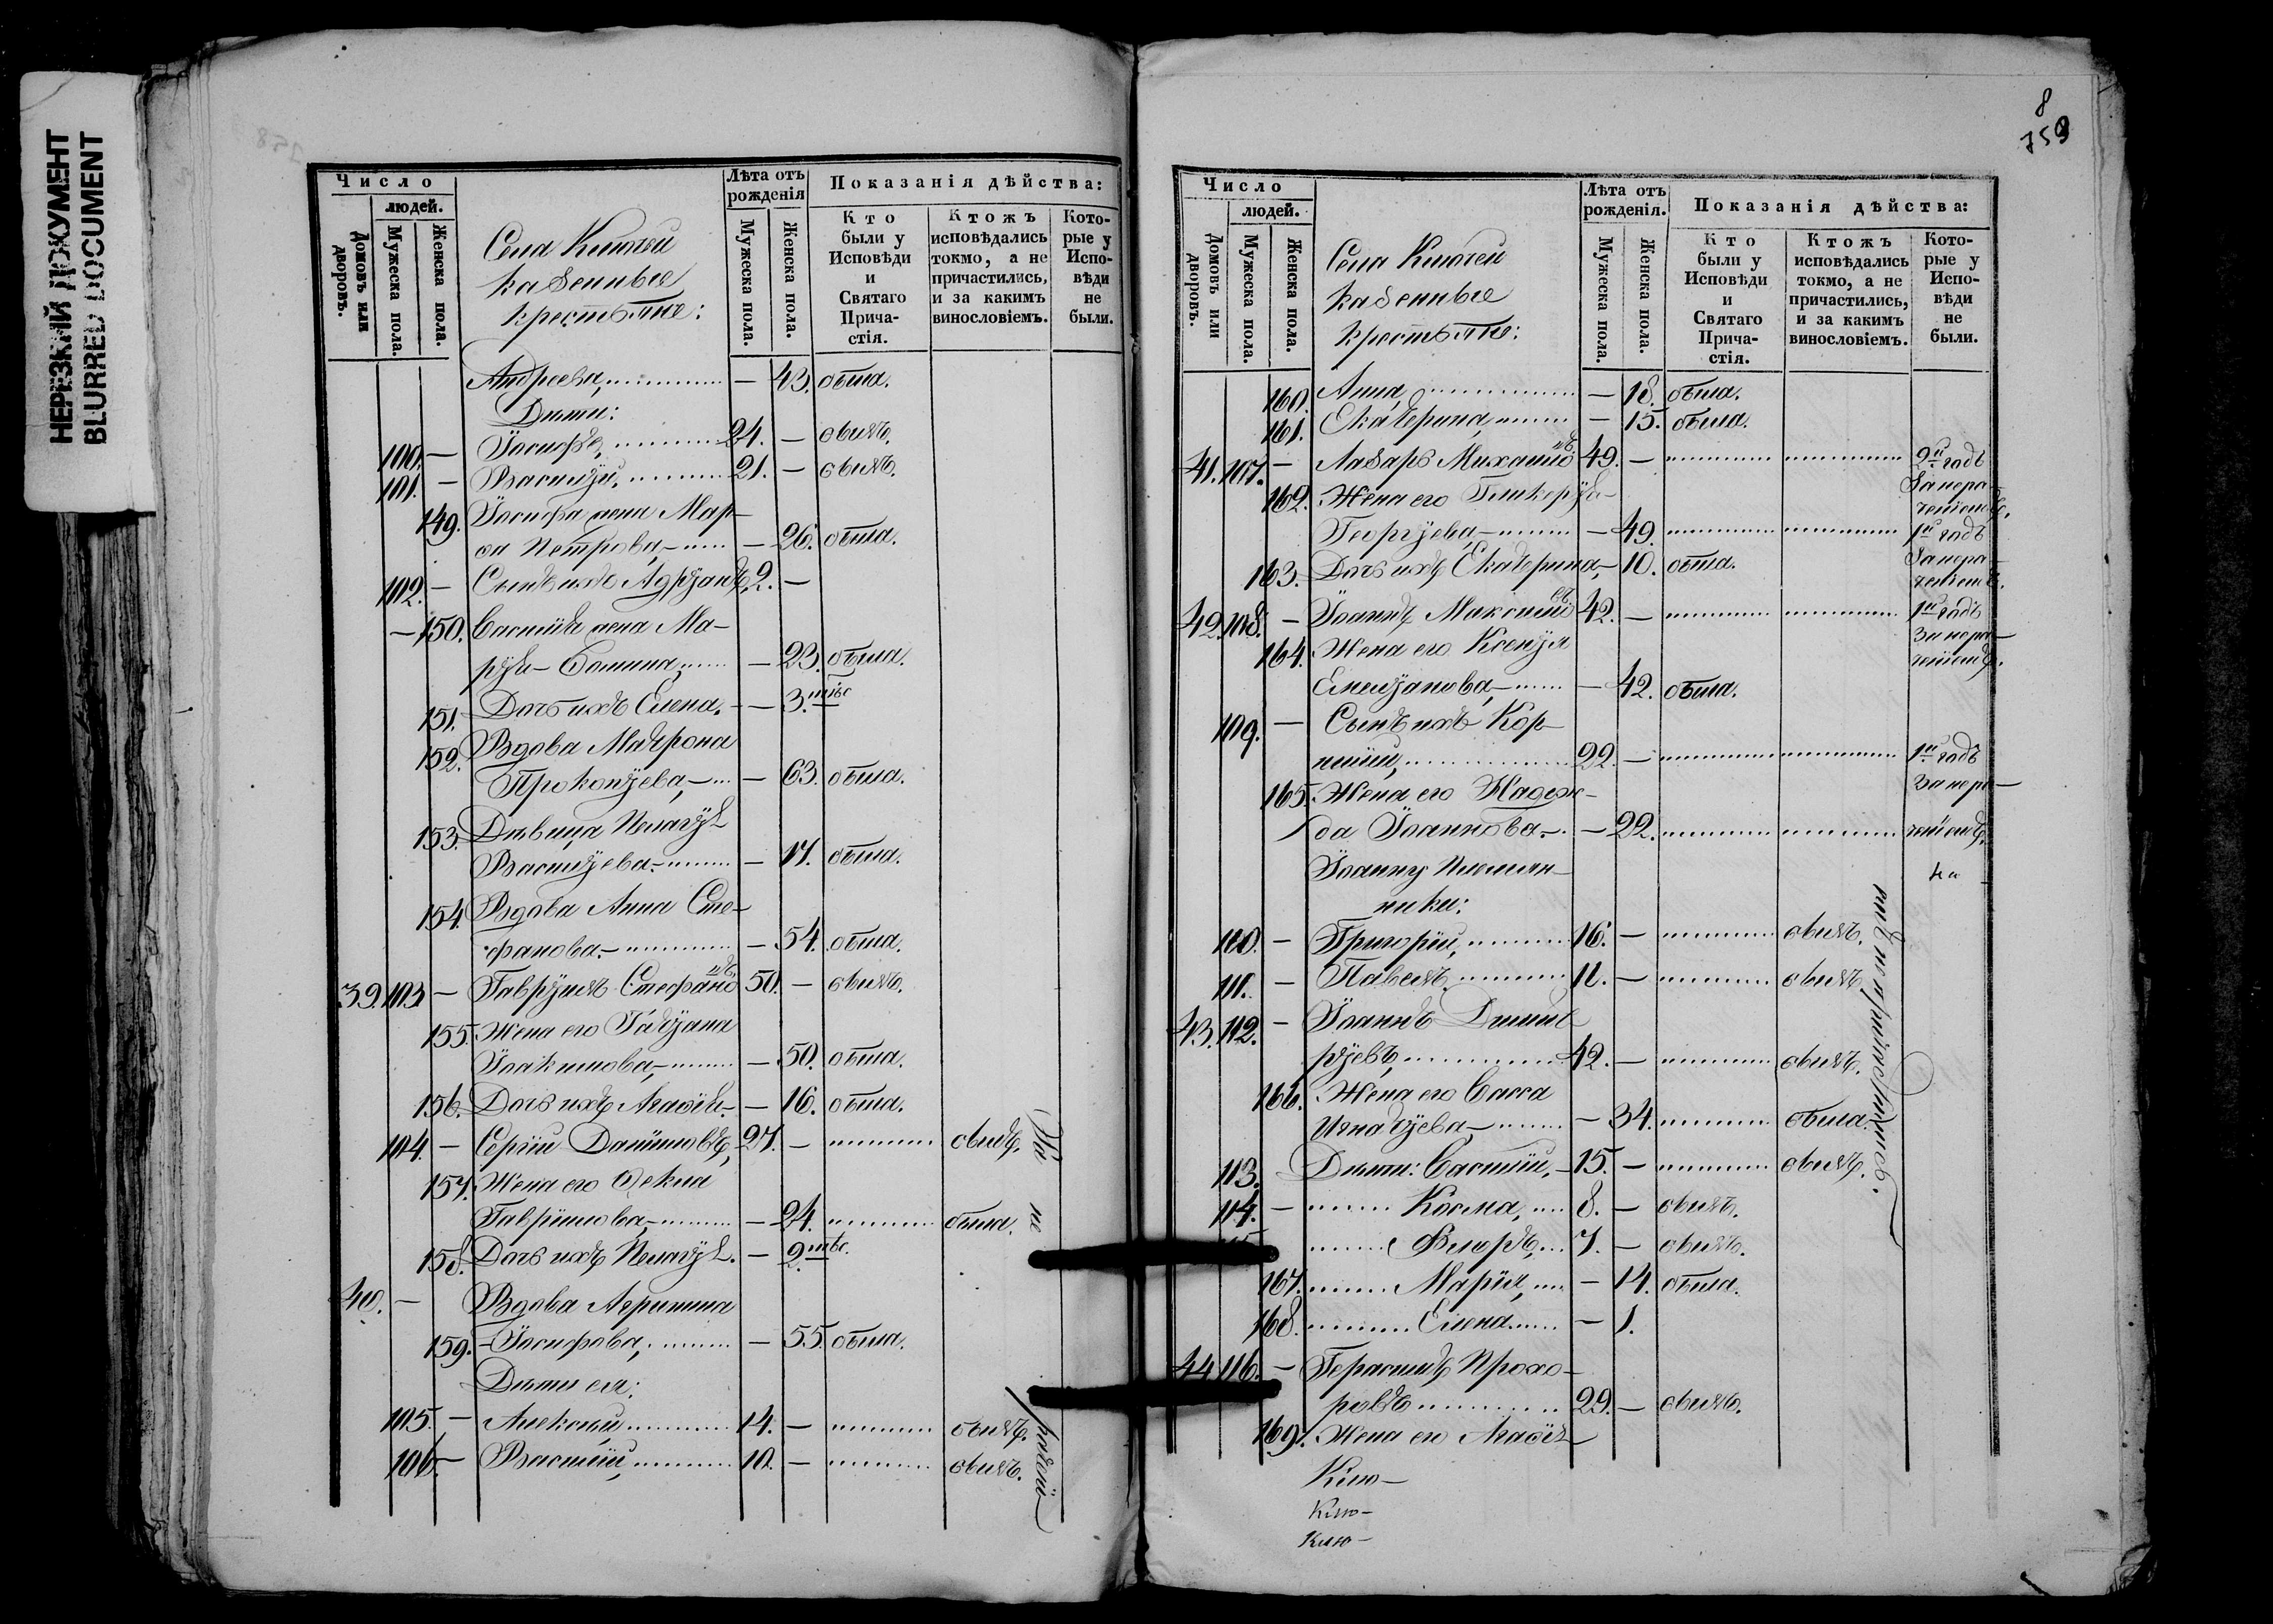 НЕРЕЗКИЙ ДОКУМЕНТ
BLURRED DOCUMENT
Число
людей.
Домовъ или дворовъ.
Мужеска пола.
Женска пола.
Села Ключей
казенные
крестьяне:
Лѣта отъ рожденія
Мужеска пола.
Женска пола.
Показанія дѣйства:
Кто были у Исповѣди и Святаго Прича-стія.
Ктожъ исповѣдались токмо, а не причастились, и за какимъ винословіемъ.
Кото-рые у Испо-вѣди не были.
Андреева, — 43. была.
Дѣти:
100. — Іосифъ, 24. — былъ.
101. — Василій, 21. — былъ.
149. Іосифа жена Мар-
ѳа Петрова, — 26. была.
102. — Сынъ ихъ Адріанъ, 2. —
— 150. Василія жена Ма-
рія Ѳомина, — 23. была.
151. Дочь ихъ Елена. — 3. мѣс
152. Вдова Матрона
Прокопіева, — 63. была.
153. Дѣвица Пелагія
Василіева. — 17. была.
154. Вдова Анна Сте-
фанова. — 54. была.
39. 103 — Гавріилъ Стефано въ, 50. — былъ.
155. Жена его Татіана
Іоакимова, — 50. была.
156. Дочь ихъ Агаѳія — 16. была.
104. — Сергій Даніиловъ, 27. — былъ.
157. Жена его Ѳекла
Гавріилова, — 24. была.
158. Дочь ихъ Пелагія. — 2. мѣс.
40. — Вдова Агрипина
159. Іосифова, — 55 была.
Дѣти ея:
105. — Алексій 14. — былъ.
106. — Василій, 10. — былъ.
8
759
Число
людей.
Домовъ или дворовъ.
Мужеска пола.
Женска пола.
Села Ключей
казенные
крестьяне:
Лѣта отъ рожденія.
Мужеска пола.
Женска пола.
Показанія дѣйства:
Кто были у Исповѣди и Святаго Прича-стія.
Ктожъ исповѣдались токмо, а не причастились, и за какимъ винословіемъ.
Кото-рые у Испо-вѣди не были.
160. Анна, — 18. была.
161. Екатерина, — 15. была.
41. 107. — Лазарь Михайло въ 49. — 2й годъ
162. Жена его Гликерія
За нера-
деніемъ.
Георгіева, — 49. 1й годъ
163. Дочь ихъ Екатерина, — 10. была.
За нера-
деніемъ.
42. 108. — Іоаннъ Максимо въ 42. — 1й годъ
164. Жена его Ксенія
За нера-
деніемъ.
Емеліанова, — 42. была.
109. — Сынъ ихъ Кор-
нилій, 22. — 1й годъ
165. Жена его Надеж-
За нера-
да Іоаннова. — 22. деніемъ.
Іоанну племян-
ники:
110. — Григорій, 16. — былъ.
111. — Павелъ 11. — былъ.
43. 112. — Іоаннъ Димит
ріевъ, 42. — былъ.
166. Жена его Васса
Игнатіева, — 34. была.
113. Дѣти: Василій, 15. — былъ.
114. — Косма, 8. — былъ.
Ѳеодръ, 7. — былъ.
167. Марія, — 14. была.
168. Елена — 1.
44 116. — Герасимъ Прохо-
ровъ 29. — былъ.
169. Жена его Агаѳія
Клю-
Клю-
Клю-